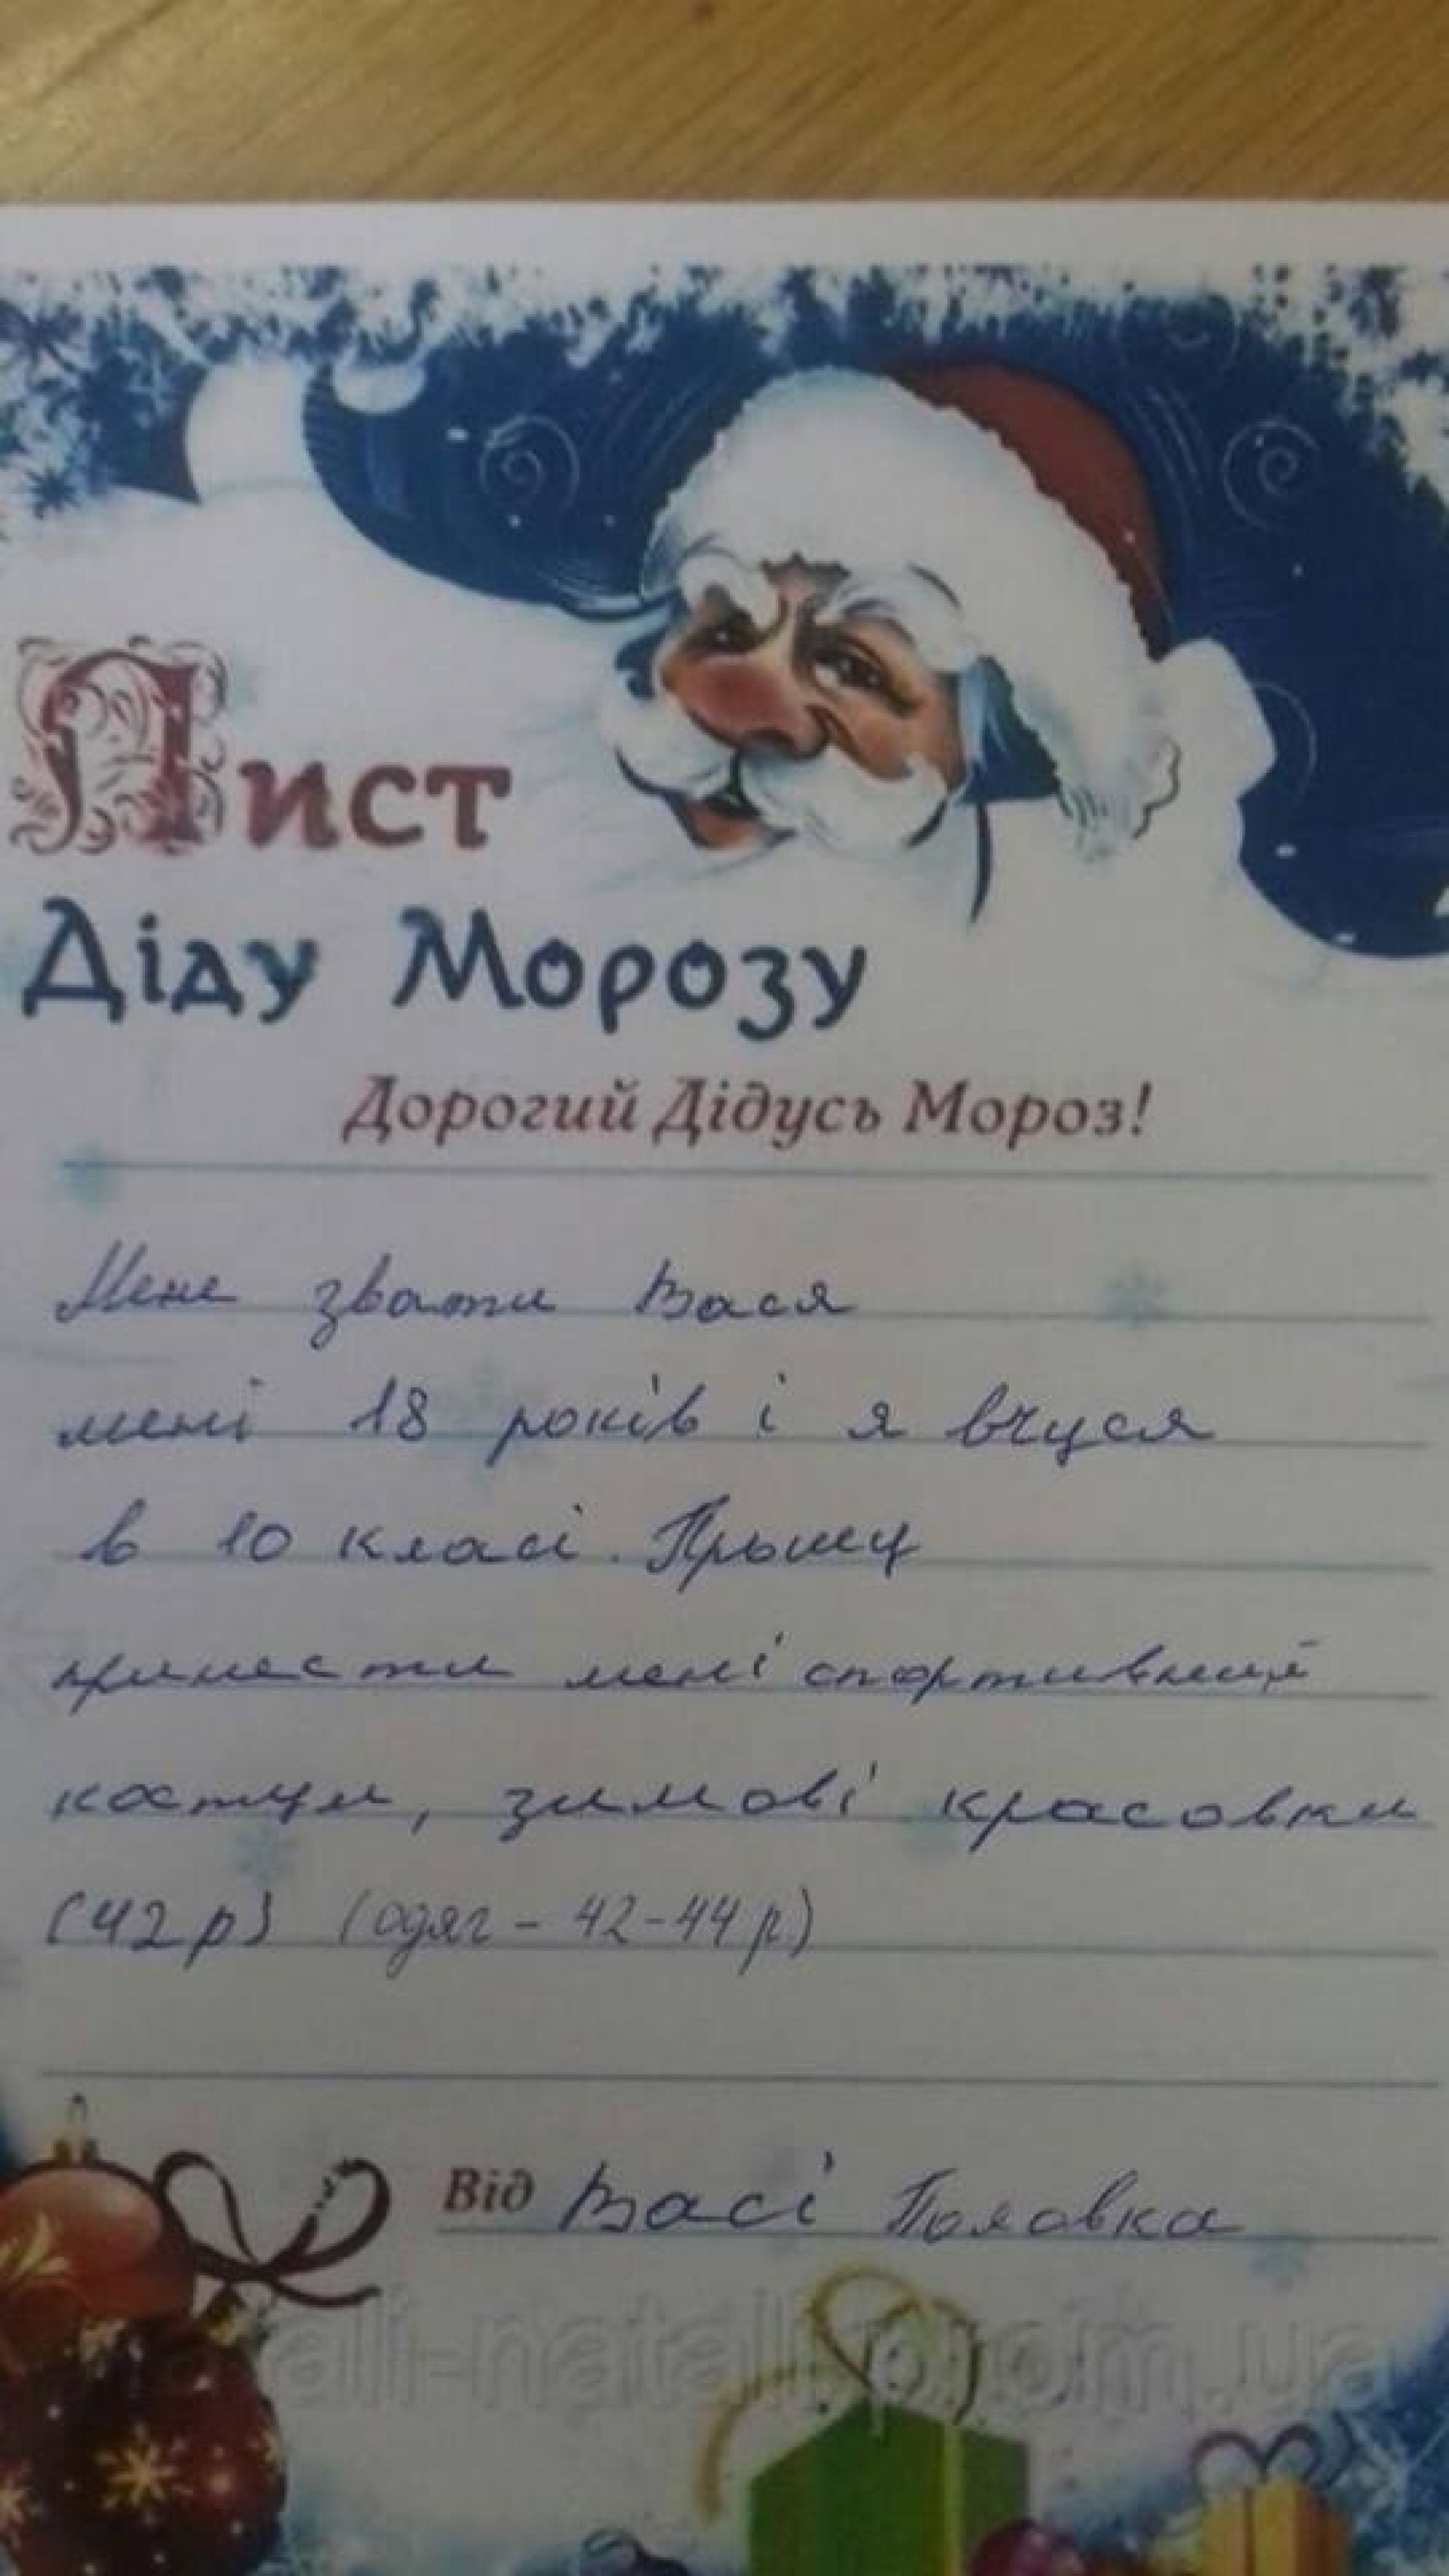 Лист
Діду Морозу
Дорогий Дідусь Мороз!
Мене звати Вася
мені 18 років і я вчуся
в 10 класі. Прошу
принести мені спортивний
костум, зимові красовки
(42р) (одяг - 42-44р)
Від Васі Половка
ali-natali.prom.ua